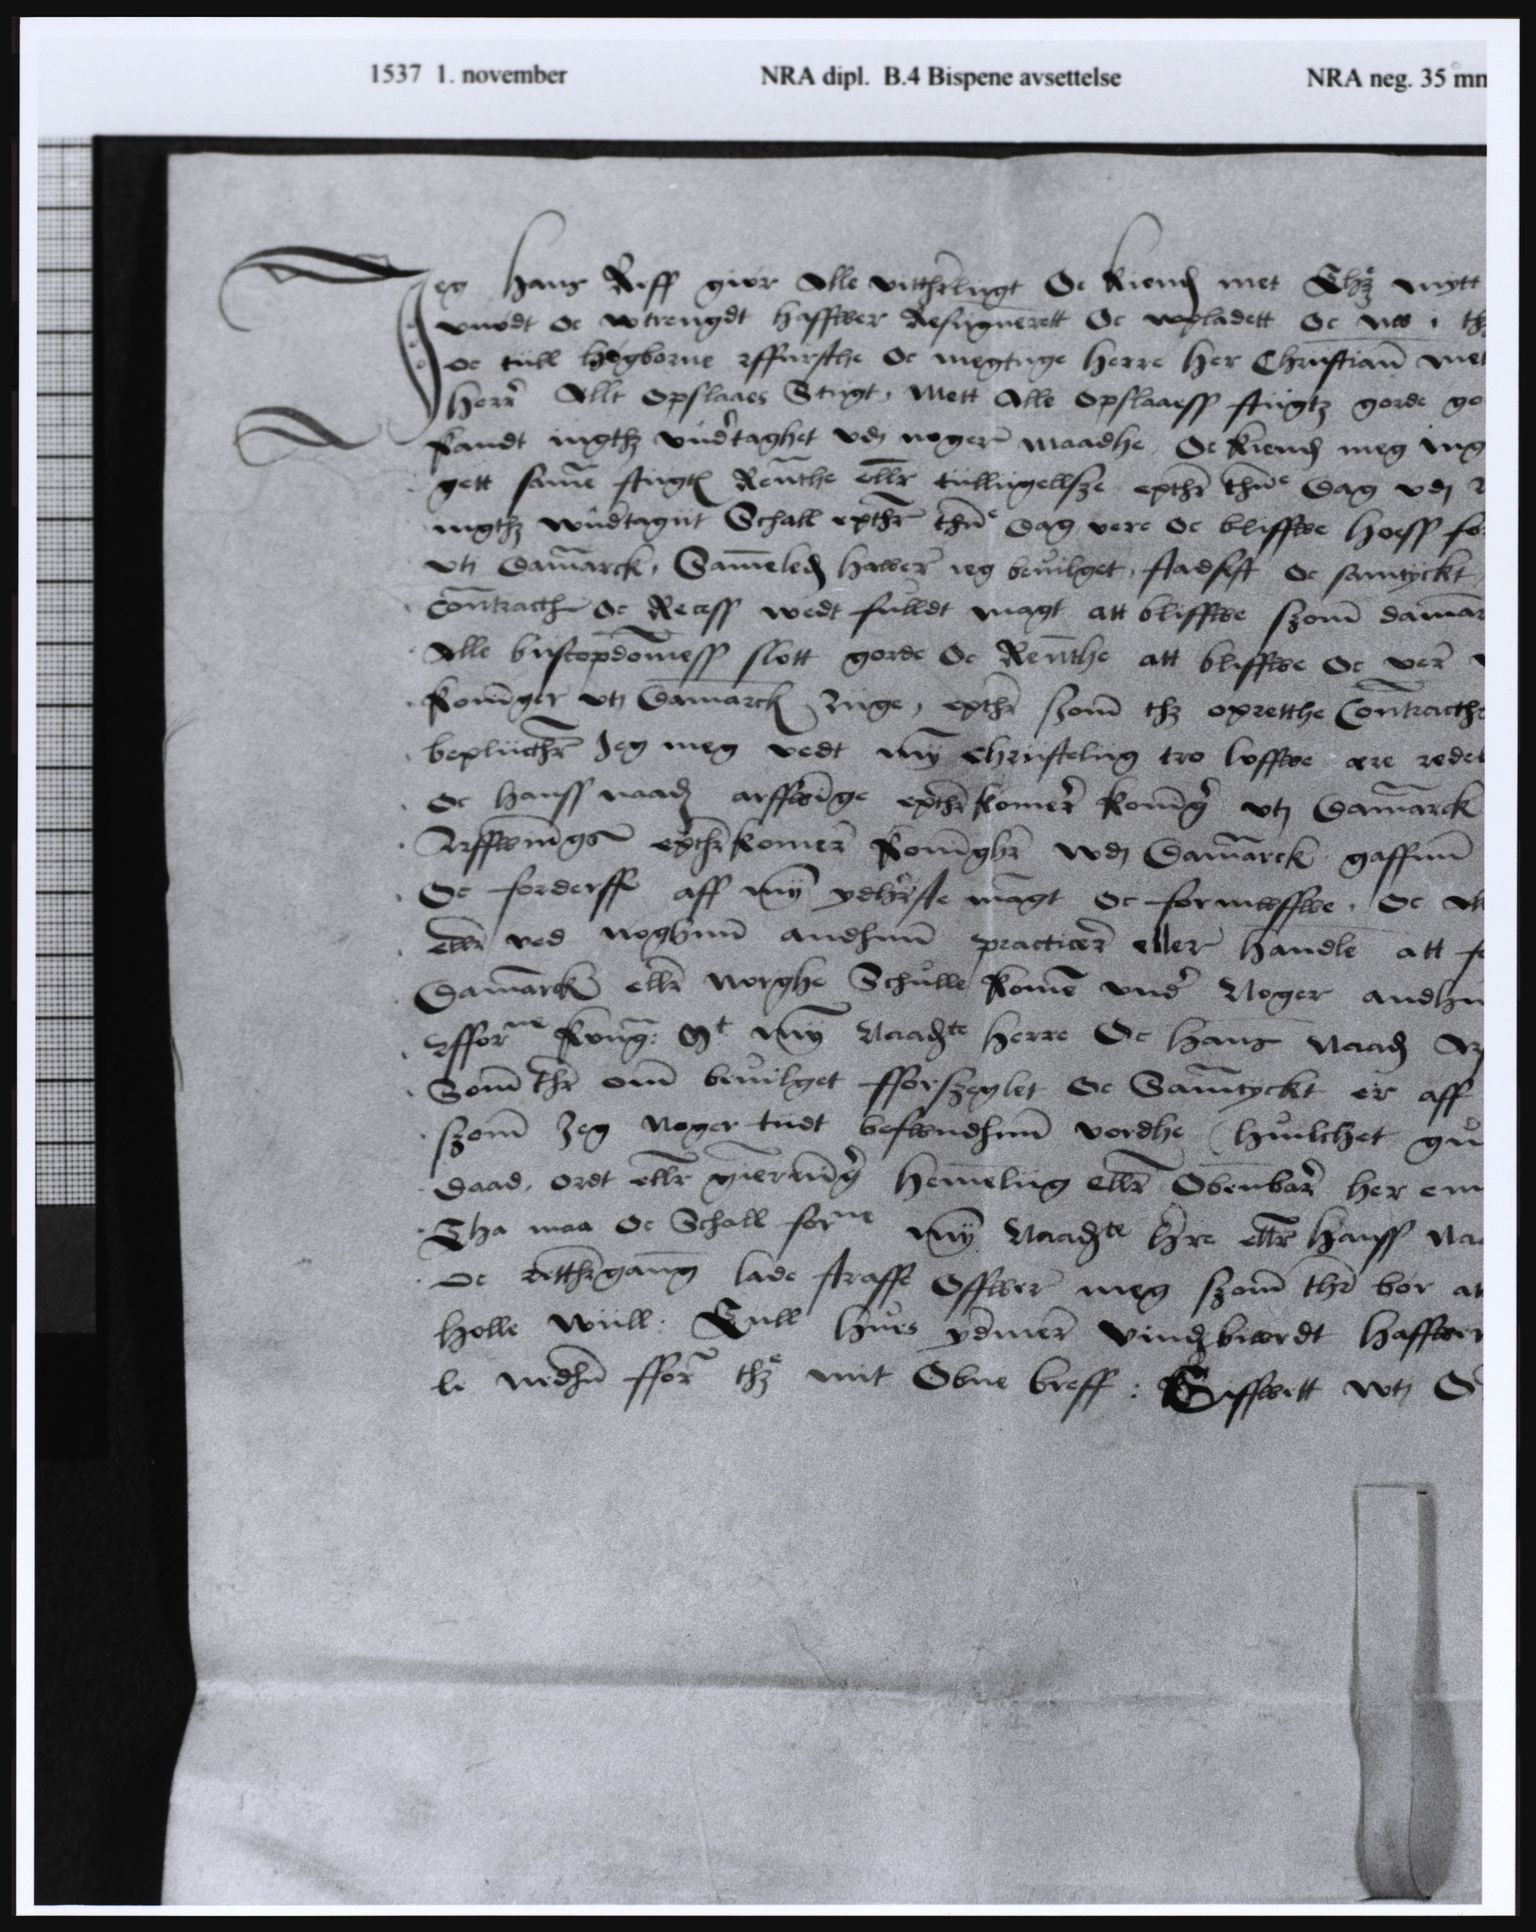 1537 1. november NRA dipl. B.4 Bispene avsettelse NRA neg. 35 mm
Jeg Hans Reff giør Alle vittherligt Oc kiendȝ met Thȝ mytt
vnødt oc wtrengdt haffwer Resigneretth Oc vpladett Oc nw i th
oc till høgborne Førsthe Oc megtige herre Her Christian met
herr Allt Opslaaes Stigt, Mett Alle Opslaaess stigtȝ gorde go
handt ingthȝ vndertaghet vdj noger maadhe Oc kiendȝ meg ing
gett same stigtȝ Renthe eller tilligellsze epther thne Dag vdj
ingthȝ wndtagnt Schall epther thne Dag vere Oc bliffwe Hoess for
vtj Danmarck, Sameledȝ hawer ieg bevilget, stadfest Oc samtyckt
Contracth Oc Recess wedt fulldt magt att bliffwe szom danmar
Alle biscopdomess slott gorde Oc Renthe att bliffwe Oc vere
konninger vtj Danmarck Rige, epther szom thȝ opretthe Contracthe
bepliicther Jeg meg vedt myn Christelig tro loffwe ære redel
Oc hanss naadȝ arffwinge eptherkomere koning vtj Danmarck
Arffwinge eptherkomere koningher wdj Danmarck gaffnn
Oc forderffe aff myn ydherste magt Oc formwffwe, Oc Al
eller ved noghnn andhnn practicer eller handle att fo
Danmarck eller Norghe Schulle komme vnder Noger andhn
forne kong: Mt myn Naadȝte Herre Oc Hans Naadȝ Ar
Som ther om bevilget fforszeglet Oc Samtyckt er aff
szom Jeg Noger tiidt befwndhnn vordhe hvilchet gu
Daad, ordt eller gierning hemelig eller Obenbar her em
Tha maa Oc Schall forne myn Naadȝte Herre eller Hanss Naa
Oc retthergang lade straffe Offwer meg szom ther bør at
holle will: Till hves ydmere vindȝbiwrdt Haffwer
le nedhen ffor thȝe mit Obne breff: Giffwett wtj O